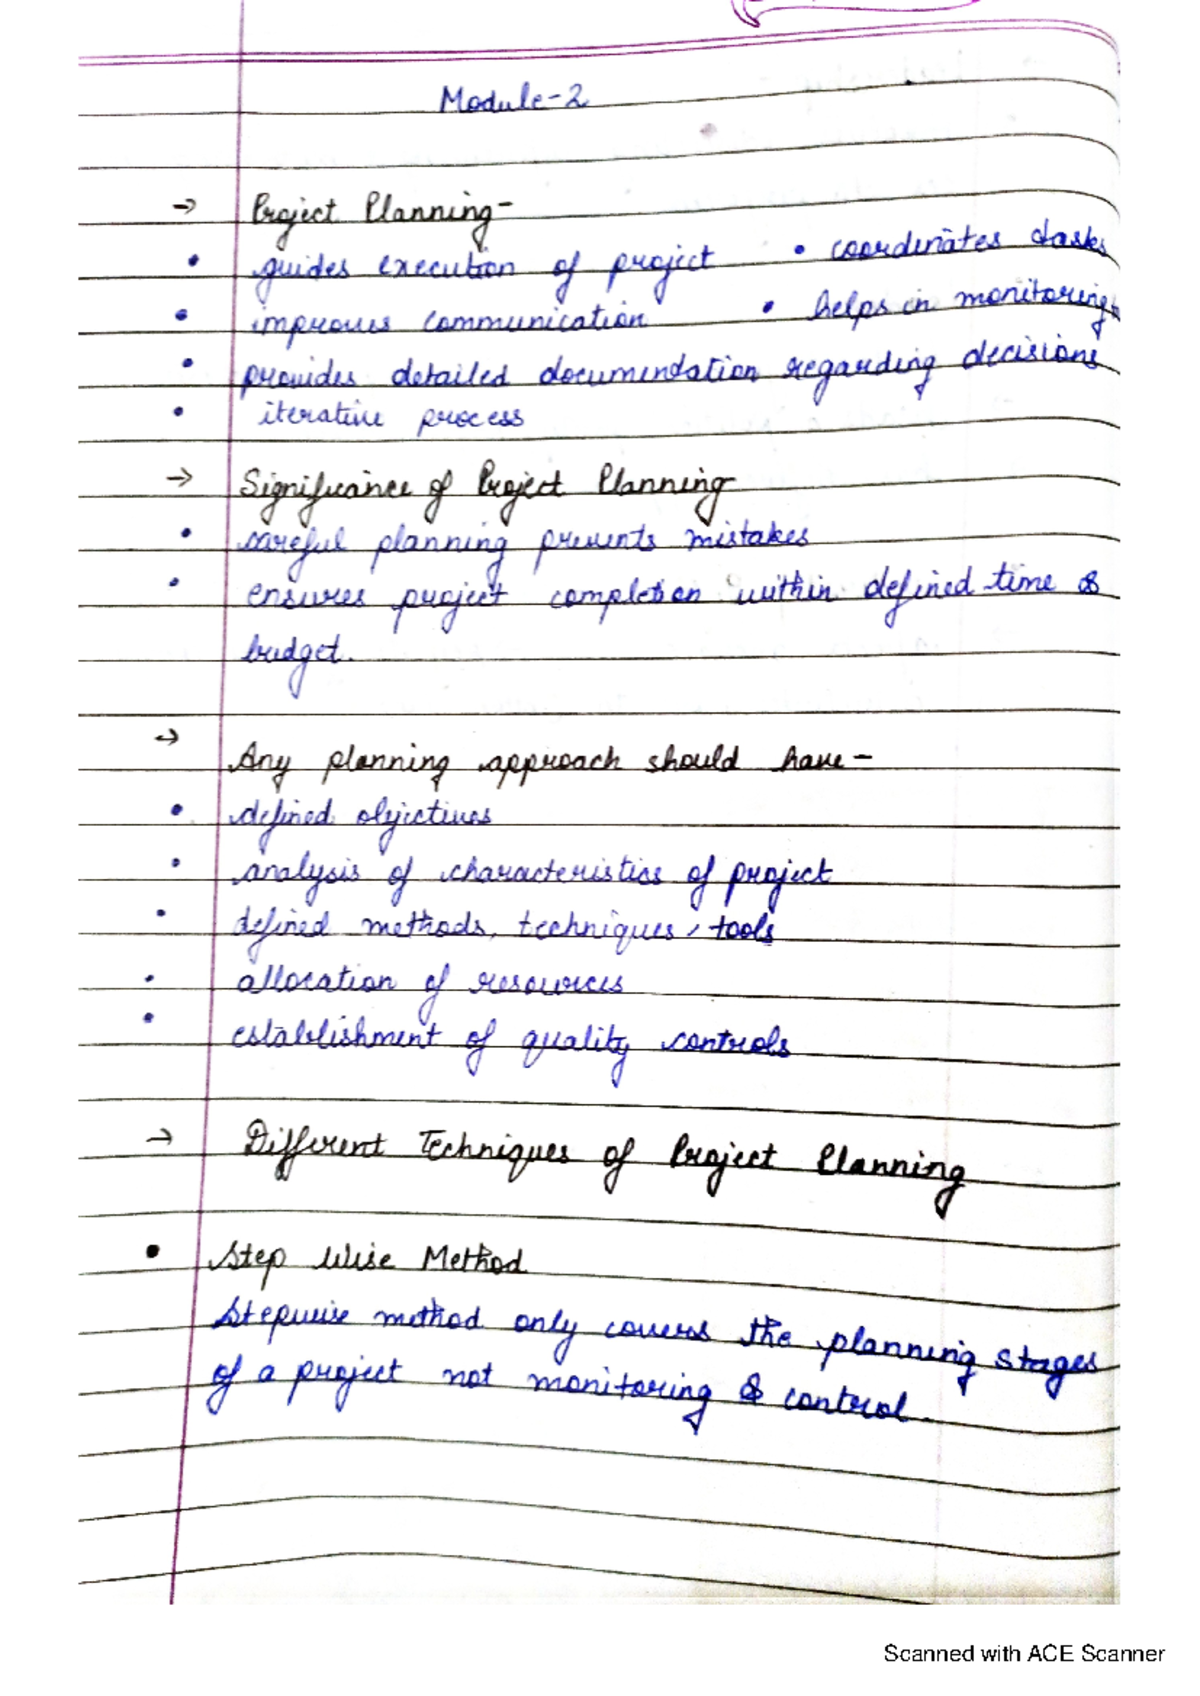 Module-2
→ Project Planning-
• guides execution of project • coordinates tasks
• improves communication • helps in monitoring
• provides detailed documentation regarding decisions
• iterative process
→ Significance of Project Planning
• careful planning prevents mistakes
• ensures project completion within defined time &
budget.
→ Any planning approach should have-
• defined objectives
• analysis of characteristics of project
• defined methods, techniques, tools
• allocation of resources
• establishment of quality controls
→ Different Techniques of Project Planning
• Step Wise Method
Stepwise method only covers the planning stages
of a project not monitoring & control.
Scanned with ACE Scanner